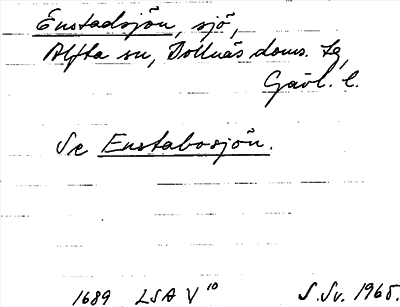 Enstadsjön, sjö,
Alfta sn, Bollnäs doms. tg,
Gävl. l.
Se Enstabosjön.
1689 LSA V 10 S. Sv. 1965.